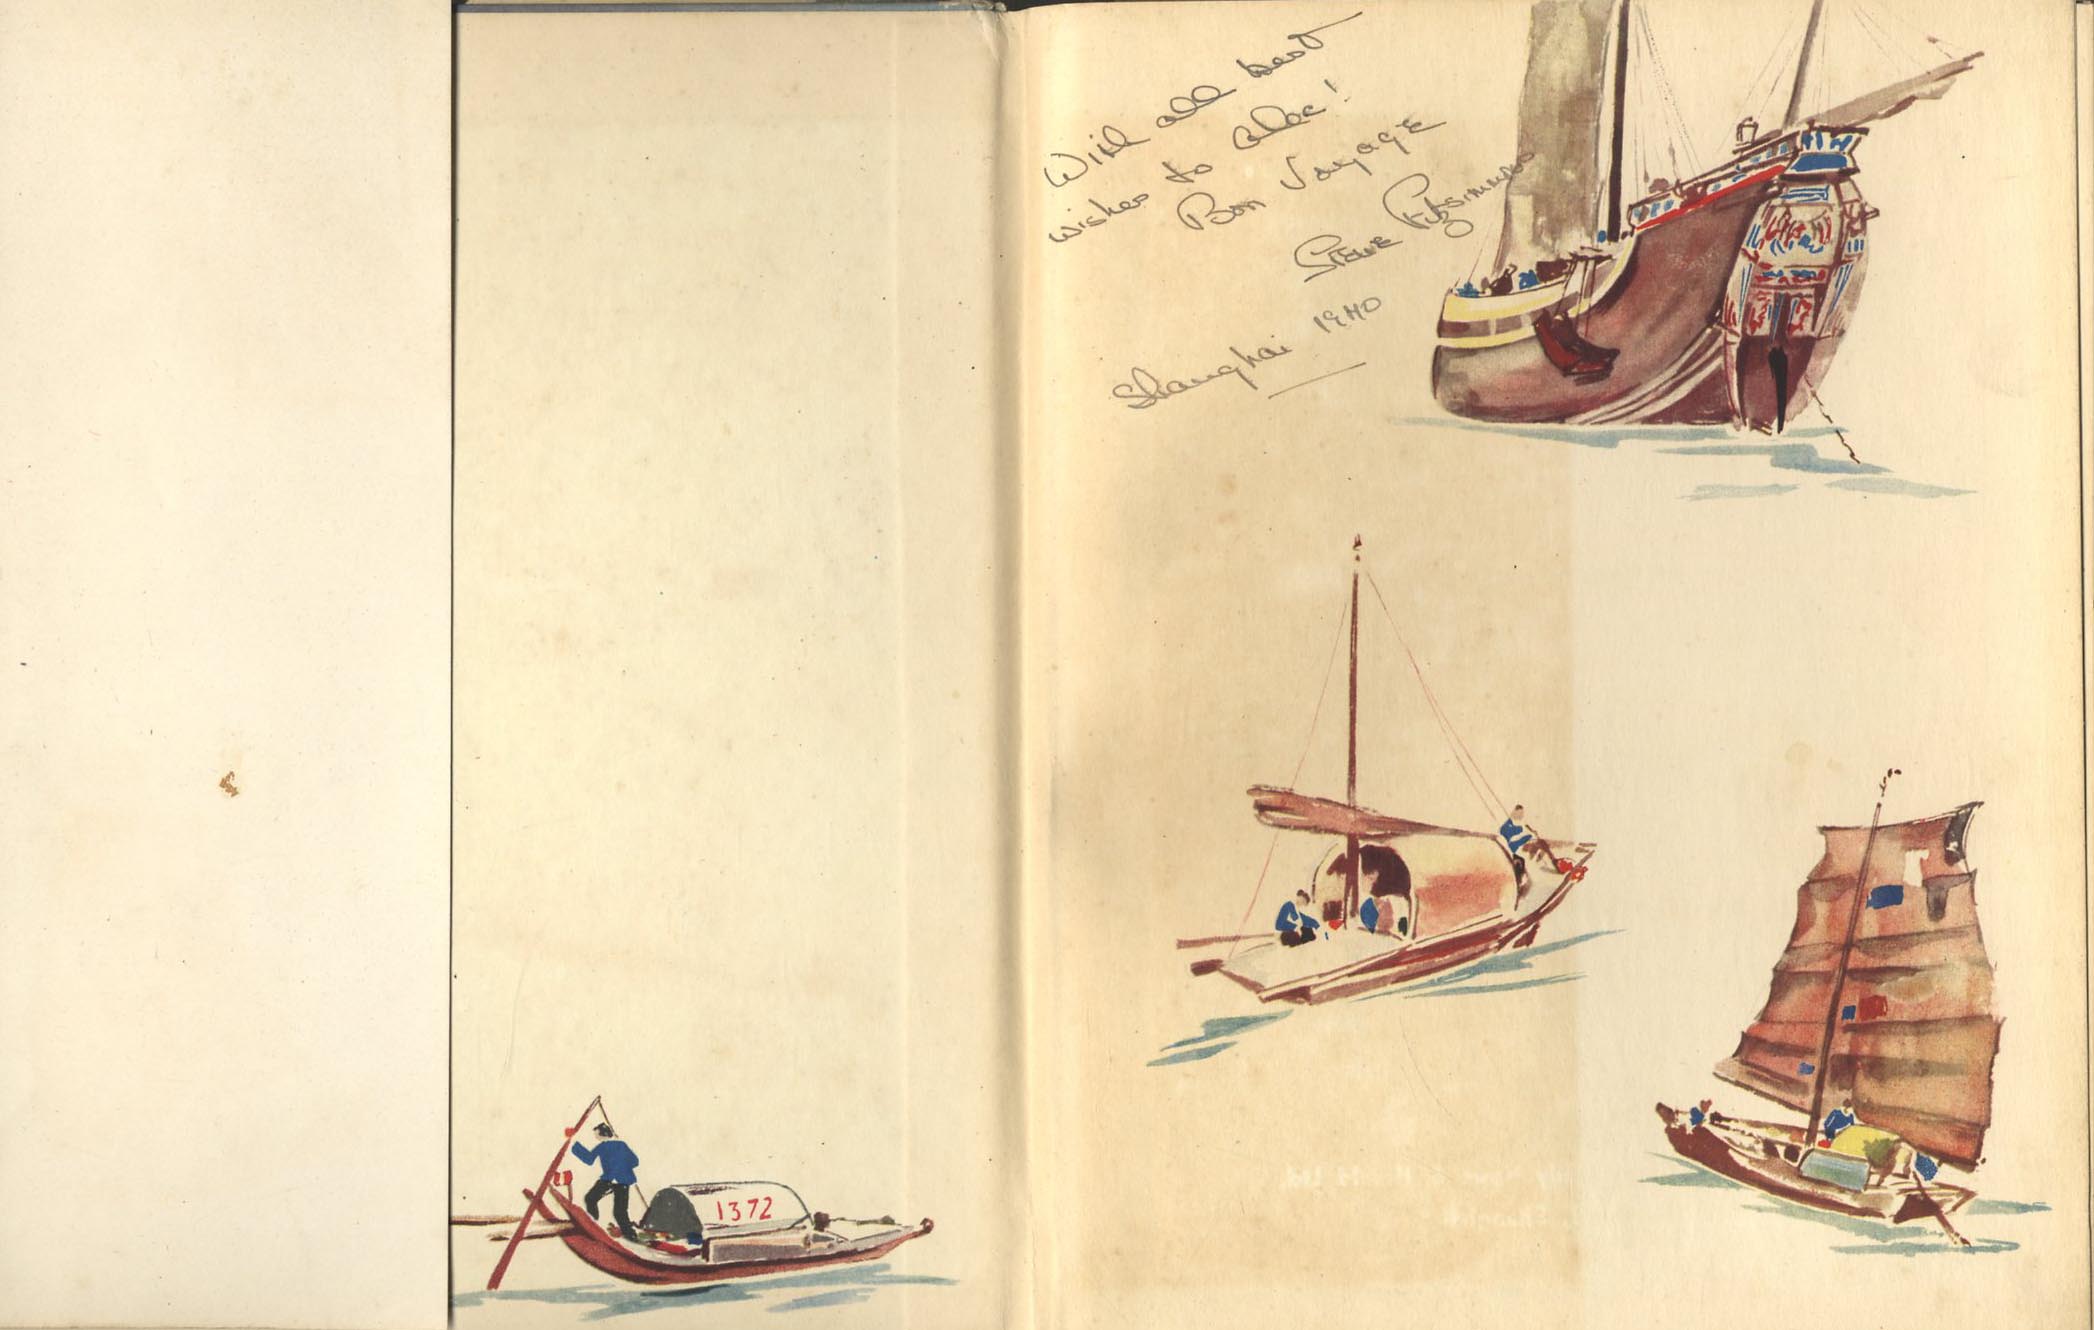 With all best
wishes to Alec!
Bon Voyage
Steve Fitzsimmons
Shanghai 1940
1372